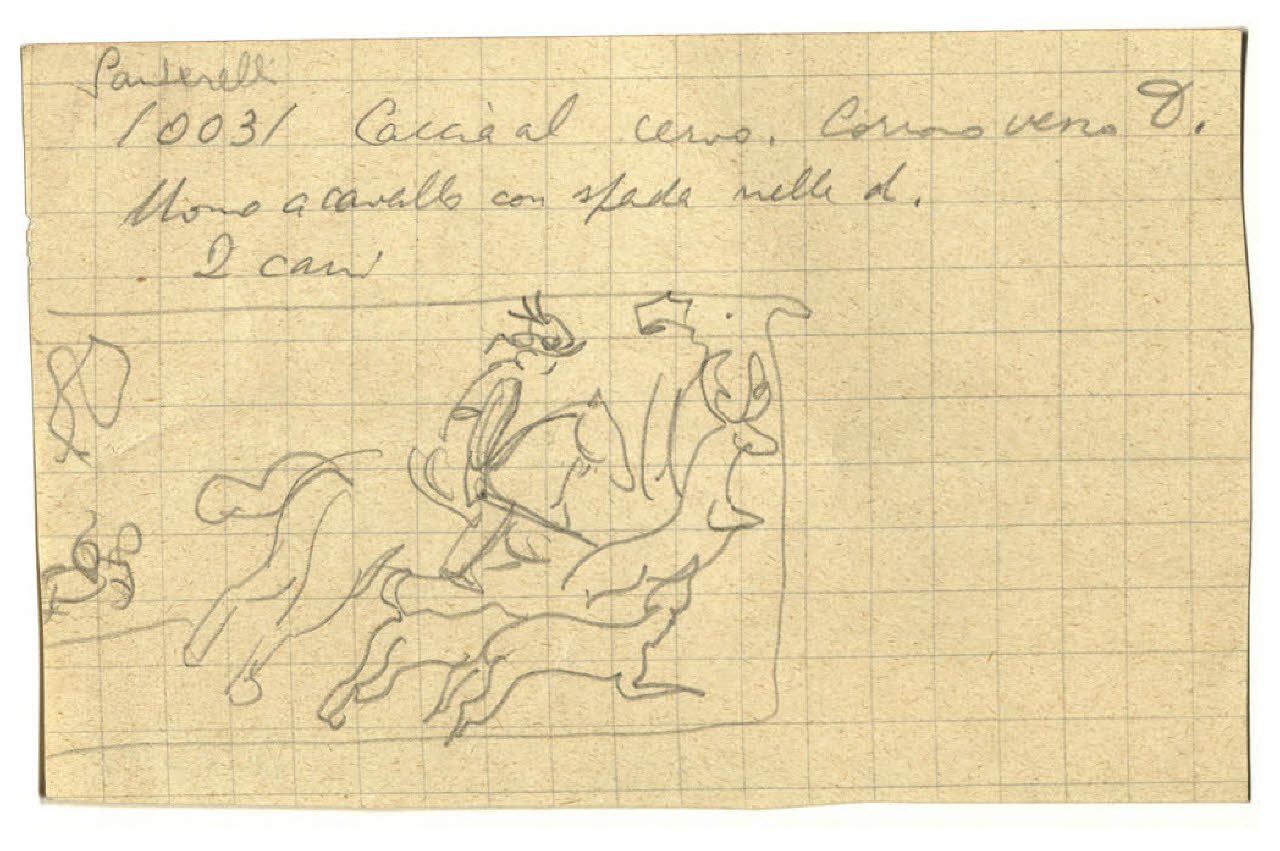 Santarelli
10031 Caccia al cervo. Corrono verso D.
Uomo a cavallo con spada nella d.
2 cani